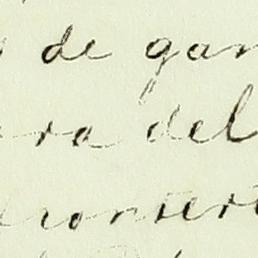 de gan
ra del
conser